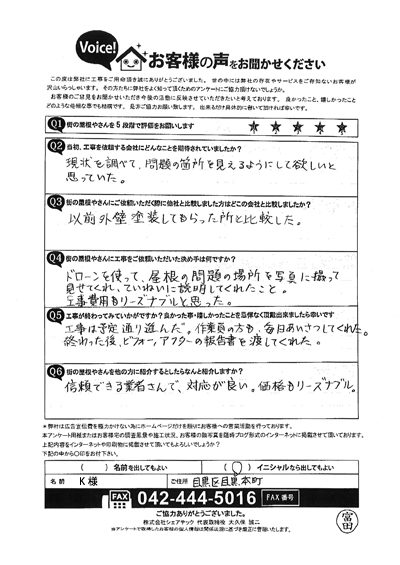 Voice!
お客様の声をお聞かせください
この度は弊社に工事をご用命頂き誠にありがとうございました。世の中には弊社の存在やサービスをご存知ないお客様が
沢山いらっしゃいます。その方たちに弊社をよく知って頂くためのアンケートにご協力頂けないでしょうか。
お客様のご意見をお聞かせいただき今後の活動に反映させていただきたいと考えております。良かったこと、嬉しかったこと
どのような些細な事でも結構です。是非ご協力お願い致します。出来るだけ具体的に書いて頂ければ幸いです。
Q1 街の屋根やさんを5段階で評価をお願いします ★ ★ ★ ★ ★
Q2 当初、工事を依頼する会社にどんなことを期待されていましたか？
現状を調べて、問題の箇所を見えるようにして欲しいと
思っていた。
Q3 街の屋根やさんにご依頼いただく際に他社と比較しました方はどこの会社と比較しましたか？
以前外壁塗装してもらった所と比較した。
Q4 街の屋根やさんに工事をご依頼いただいた決め手は何ですか？
ドローンを使って、屋根の問題の場所を写真に撮って
見せてくれ、ていねいに説明してくれたこと。
工事費用もリーズナブルと思った。
Q5 工事が終わってみていかがですか？良かった事・嬉しかったことを忌憚なく頂戴出来ましたら幸いです
工事は予定通り進んだ。作業員の方も、毎日あいさつしてくれた。
終わった後、ビフォー、アフターの報告書を渡してくれた。
Q6 街の屋根やさんを他の方に紹介するとしたらなんと紹介しますか？
信頼できる業者さんで、対応が良い。価格もリーズナブル。
＊弊社は広告宣伝費を極力かけない為にホームページだけを頼りにお客様への営業活動を行っております。
本アンケート用紙またはお客様宅の調査風景や施工状況、お客様の顔写真を随時ブログ形式のインターネットに掲載させて頂いております。
上記内容をインターネットや印刷物に掲載させて頂いてもよろしいでしょうか？
下記の中から〇印をお付け下さい。
（ ）名前を出してもよい （〇）イニシャルなら出してもよい
名前 K様 ご住所 目黒区目黒本町
FAX 042-444-5016 FAX番号
ご協力ありがとうございました。
株式会社シェアテック 代表取締役 大久保 誠二
※アンケートで取得したお客様の個人情報は関係法規に基づき厳正に管理いたします。
富田